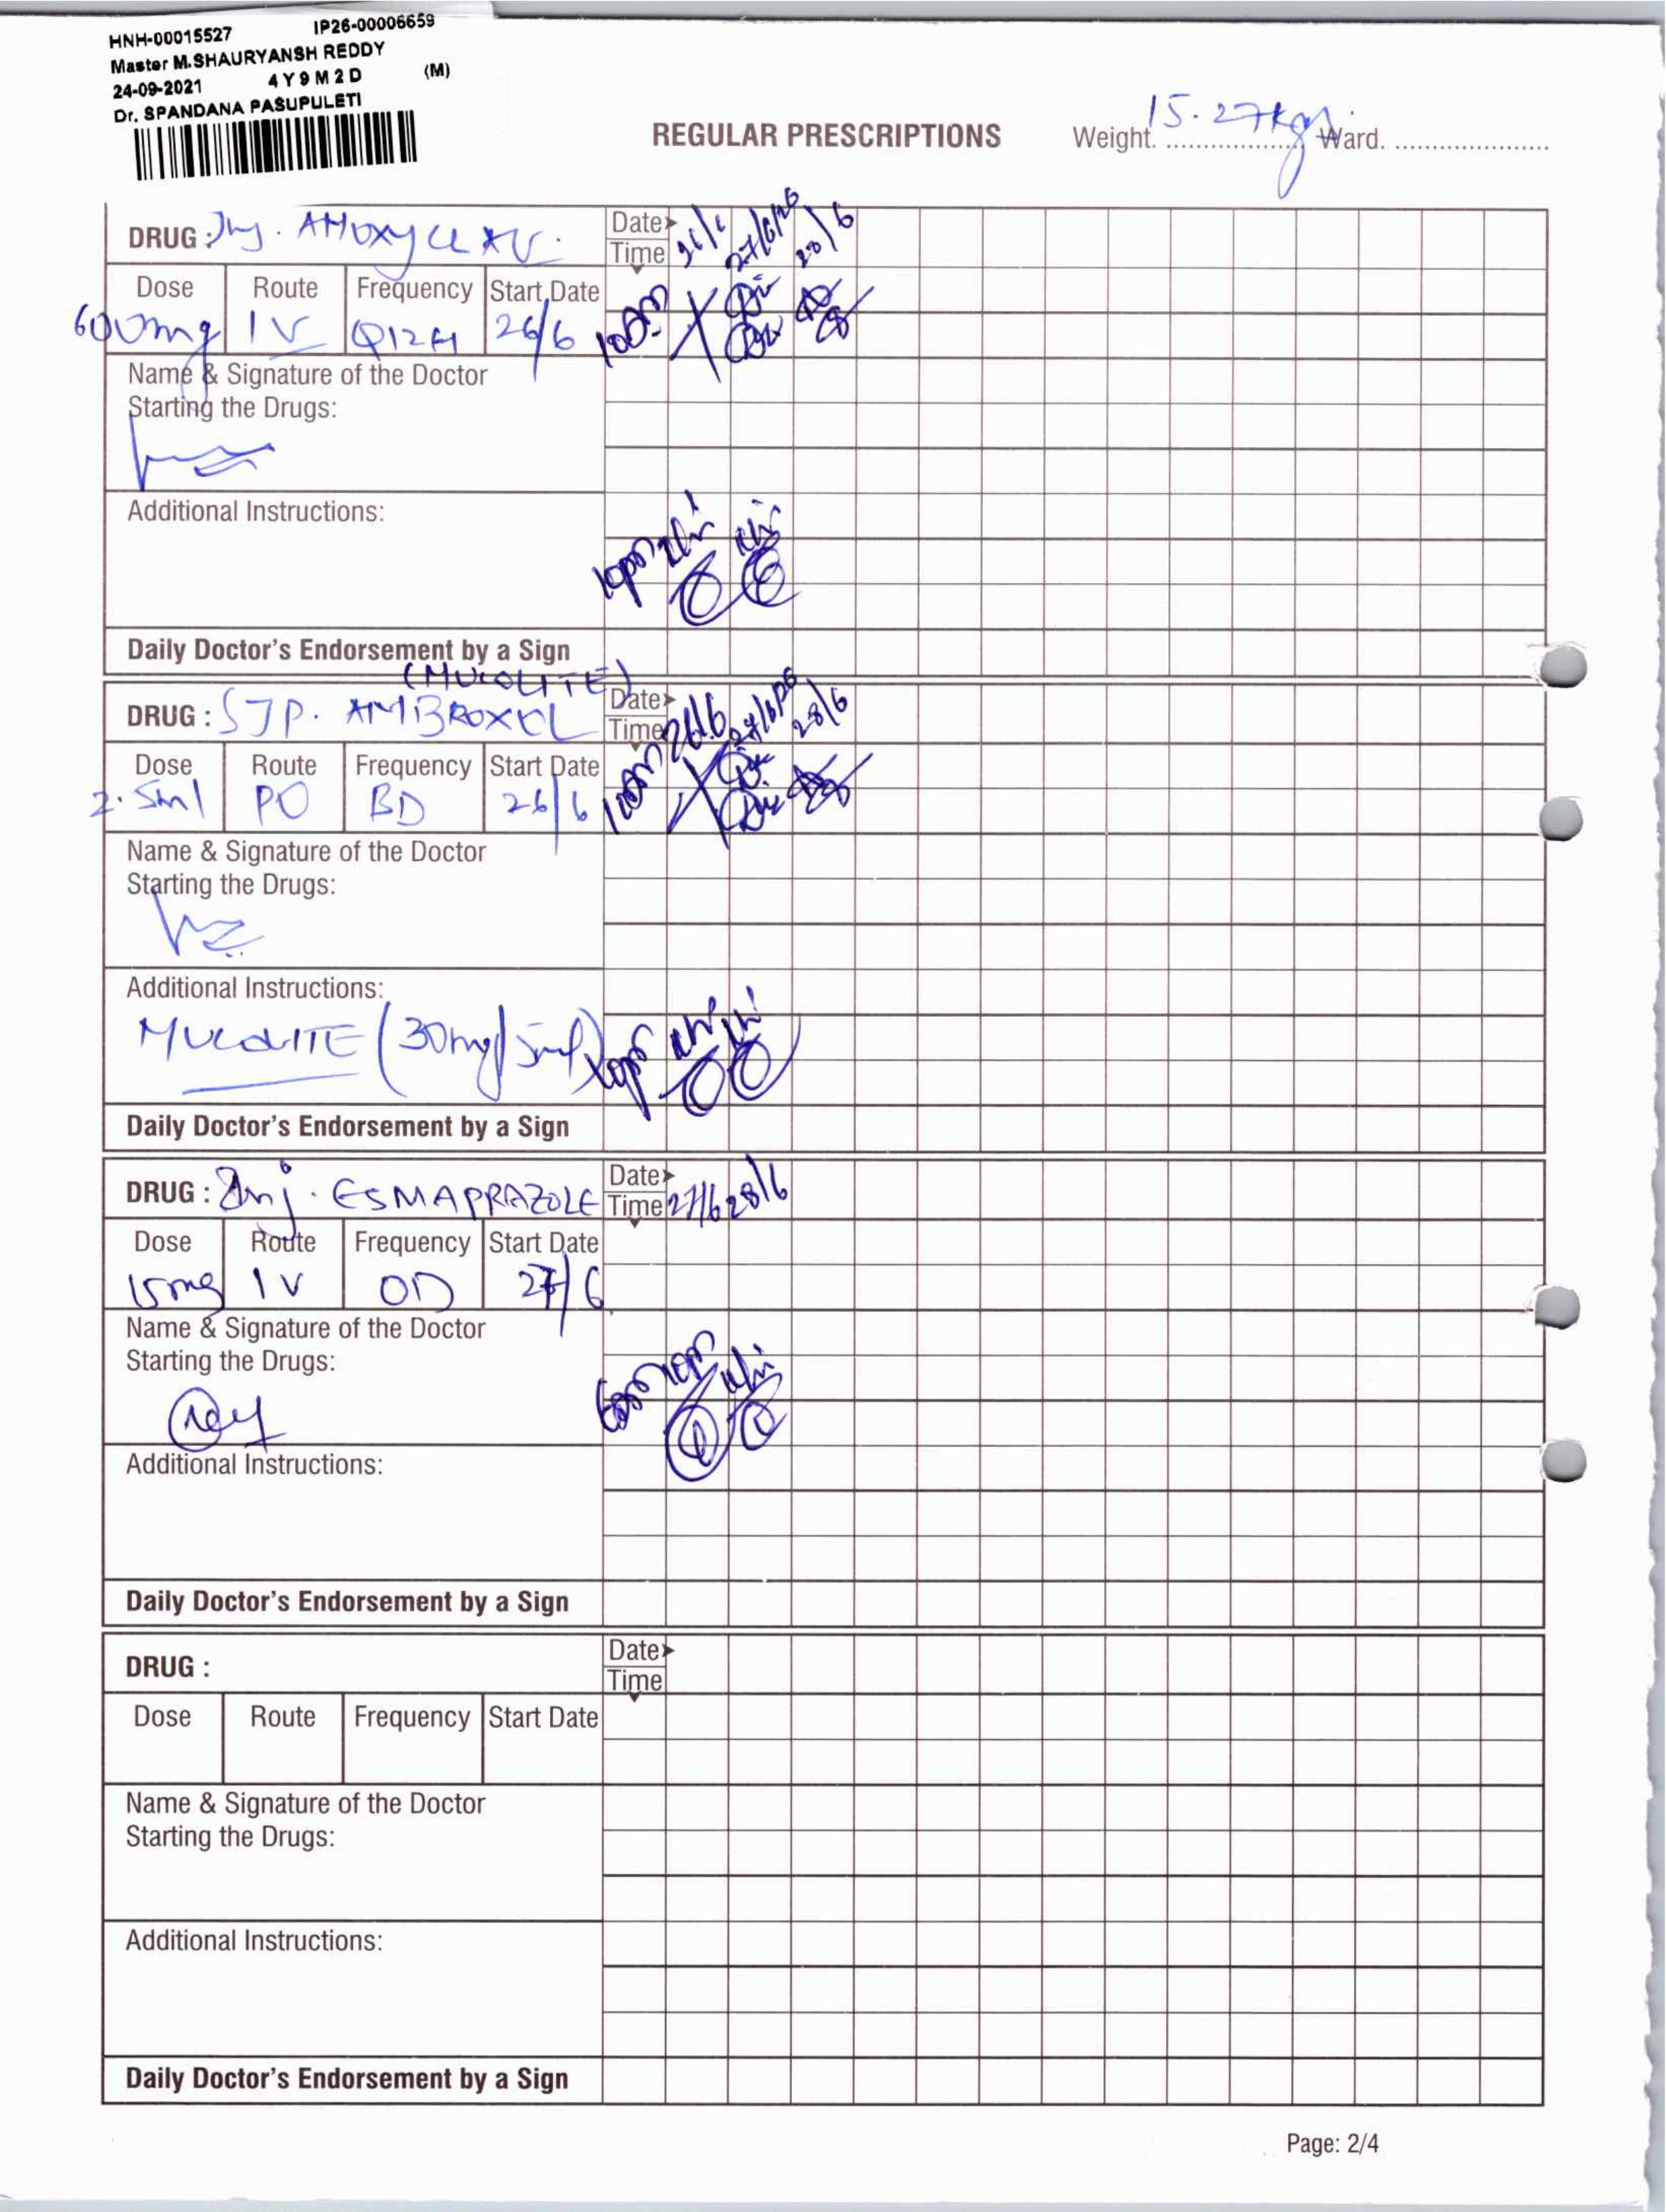 HNH-00015527 IP26-00006659
Master M.SHAURYANSH REDDY
24-09-2021 4Y9M2D (M)
Dr. SPANDANA PASUPULETI
REGULAR PRESCRIPTIONS Weight. 15.27kgs Ward.
DRUG : Inj. AMOXYCLAV. Date 26/6 27/6/26 28/6
Time
Dose Route Frequency Start Date
600mg IV Q12H 26/6 10am
Name & Signature of the Doctor
Starting the Drugs:
Additional Instructions:
10pm
Daily Doctor's Endorsement by a Sign
(MUCOLITE)
DRUG : SJP. AMBROXOL Date 26/6 27/6/26 28/6
Time
Dose Route Frequency Start Date
2.5ml PO BD 26/6 10am
Name & Signature of the Doctor
Starting the Drugs:
Additional Instructions:
MUCOLITE (30mg/5ml) 10pm
Daily Doctor's Endorsement by a Sign
DRUG : Inj. ESMAPRAZOLE Date
Time 27/6 28/6
Dose Route Frequency Start Date
15mg IV OD 27/6
Name & Signature of the Doctor
Starting the Drugs:
Additional Instructions:
Daily Doctor's Endorsement by a Sign
DRUG : Date
Time
Dose Route Frequency Start Date
Name & Signature of the Doctor
Starting the Drugs:
Additional Instructions:
Daily Doctor's Endorsement by a Sign
Page: 2/4